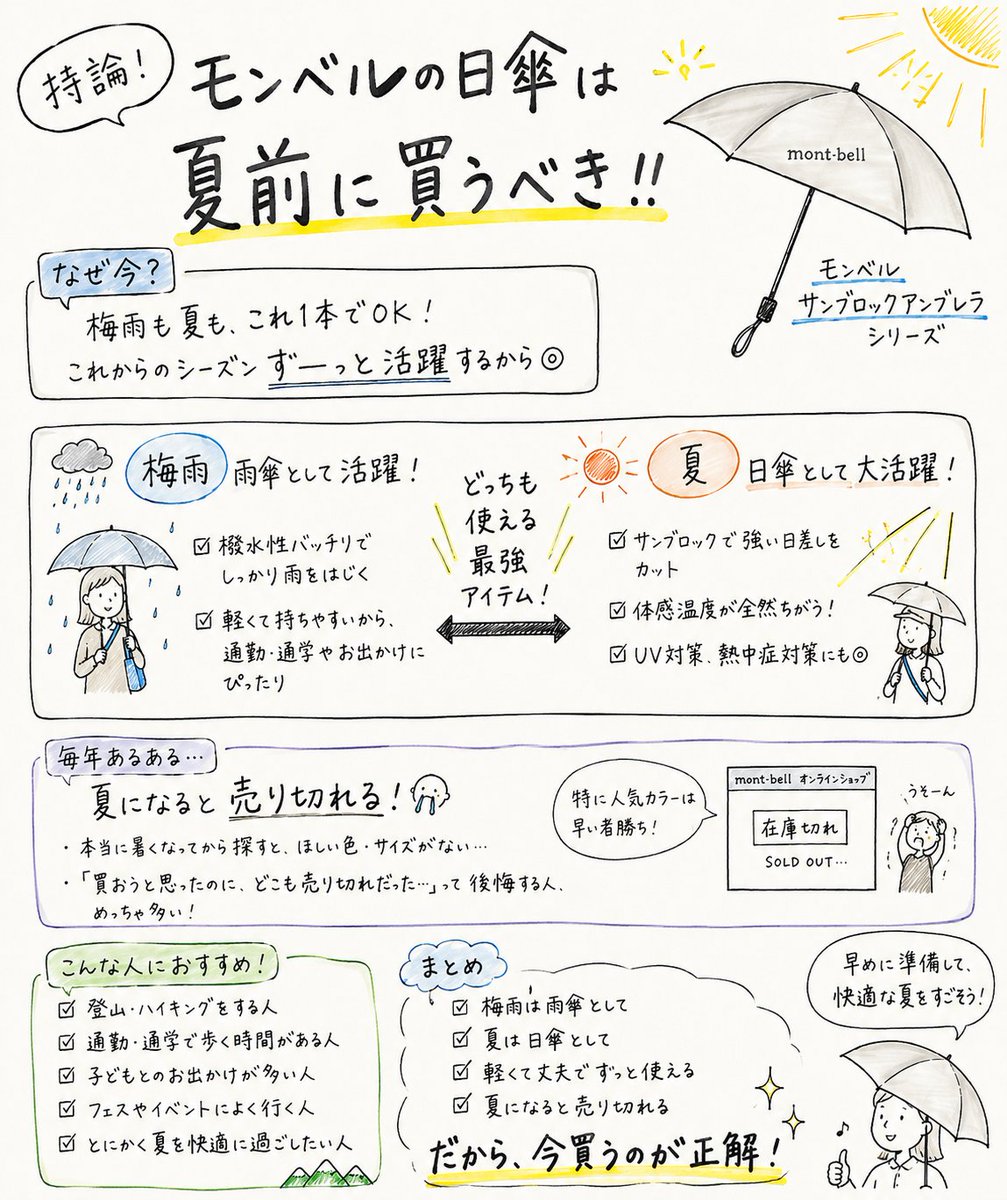 持論！
モンベルの日傘は
夏前に買うべき!!
mont-bell
モンベル
サンブロックアンブレラ
シリーズ
なぜ今？
梅雨も夏も、これ1本でOK！
これからのシーズン ずーっと活躍するから◎
梅雨 雨傘として活躍！
☑ 撥水性バッチリで
しっかり雨をはじく
☑ 軽くて持ちやすいから、
通勤・通学やお出かけに
ぴったり
どっちも
使える
最強
アイテム！
夏 日傘として大活躍！
☑ サンブロックで強い日差しを
カット
☑ 体感温度が全然ちがう！
☑ UV対策、熱中症対策にも◎
毎年あるある…
夏になると 売り切れる！
・本当に暑くなってから探すと、ほしい色・サイズがない…
・「買おうと思ったのに、どこも売り切れだった…」って後悔する人、
めっちゃ多い！
特に人気カラーは
早い者勝ち！
mont-bell オンラインショップ
在庫切れ
SOLD OUT…
うそーん
こんな人におすすめ！
☑ 登山・ハイキングをする人
☑ 通勤・通学で歩く時間がある人
☑ 子どもとのお出かけが多い人
☑ フェスやイベントによく行く人
☑ とにかく夏を快適に過ごしたい人
まとめ
☑ 梅雨は雨傘として
☑ 夏は日傘として
☑ 軽くて丈夫でずっと使える
☑ 夏になると売り切れる
だから、今買うのが正解！
早めに準備して、
快適な夏をすごそう！